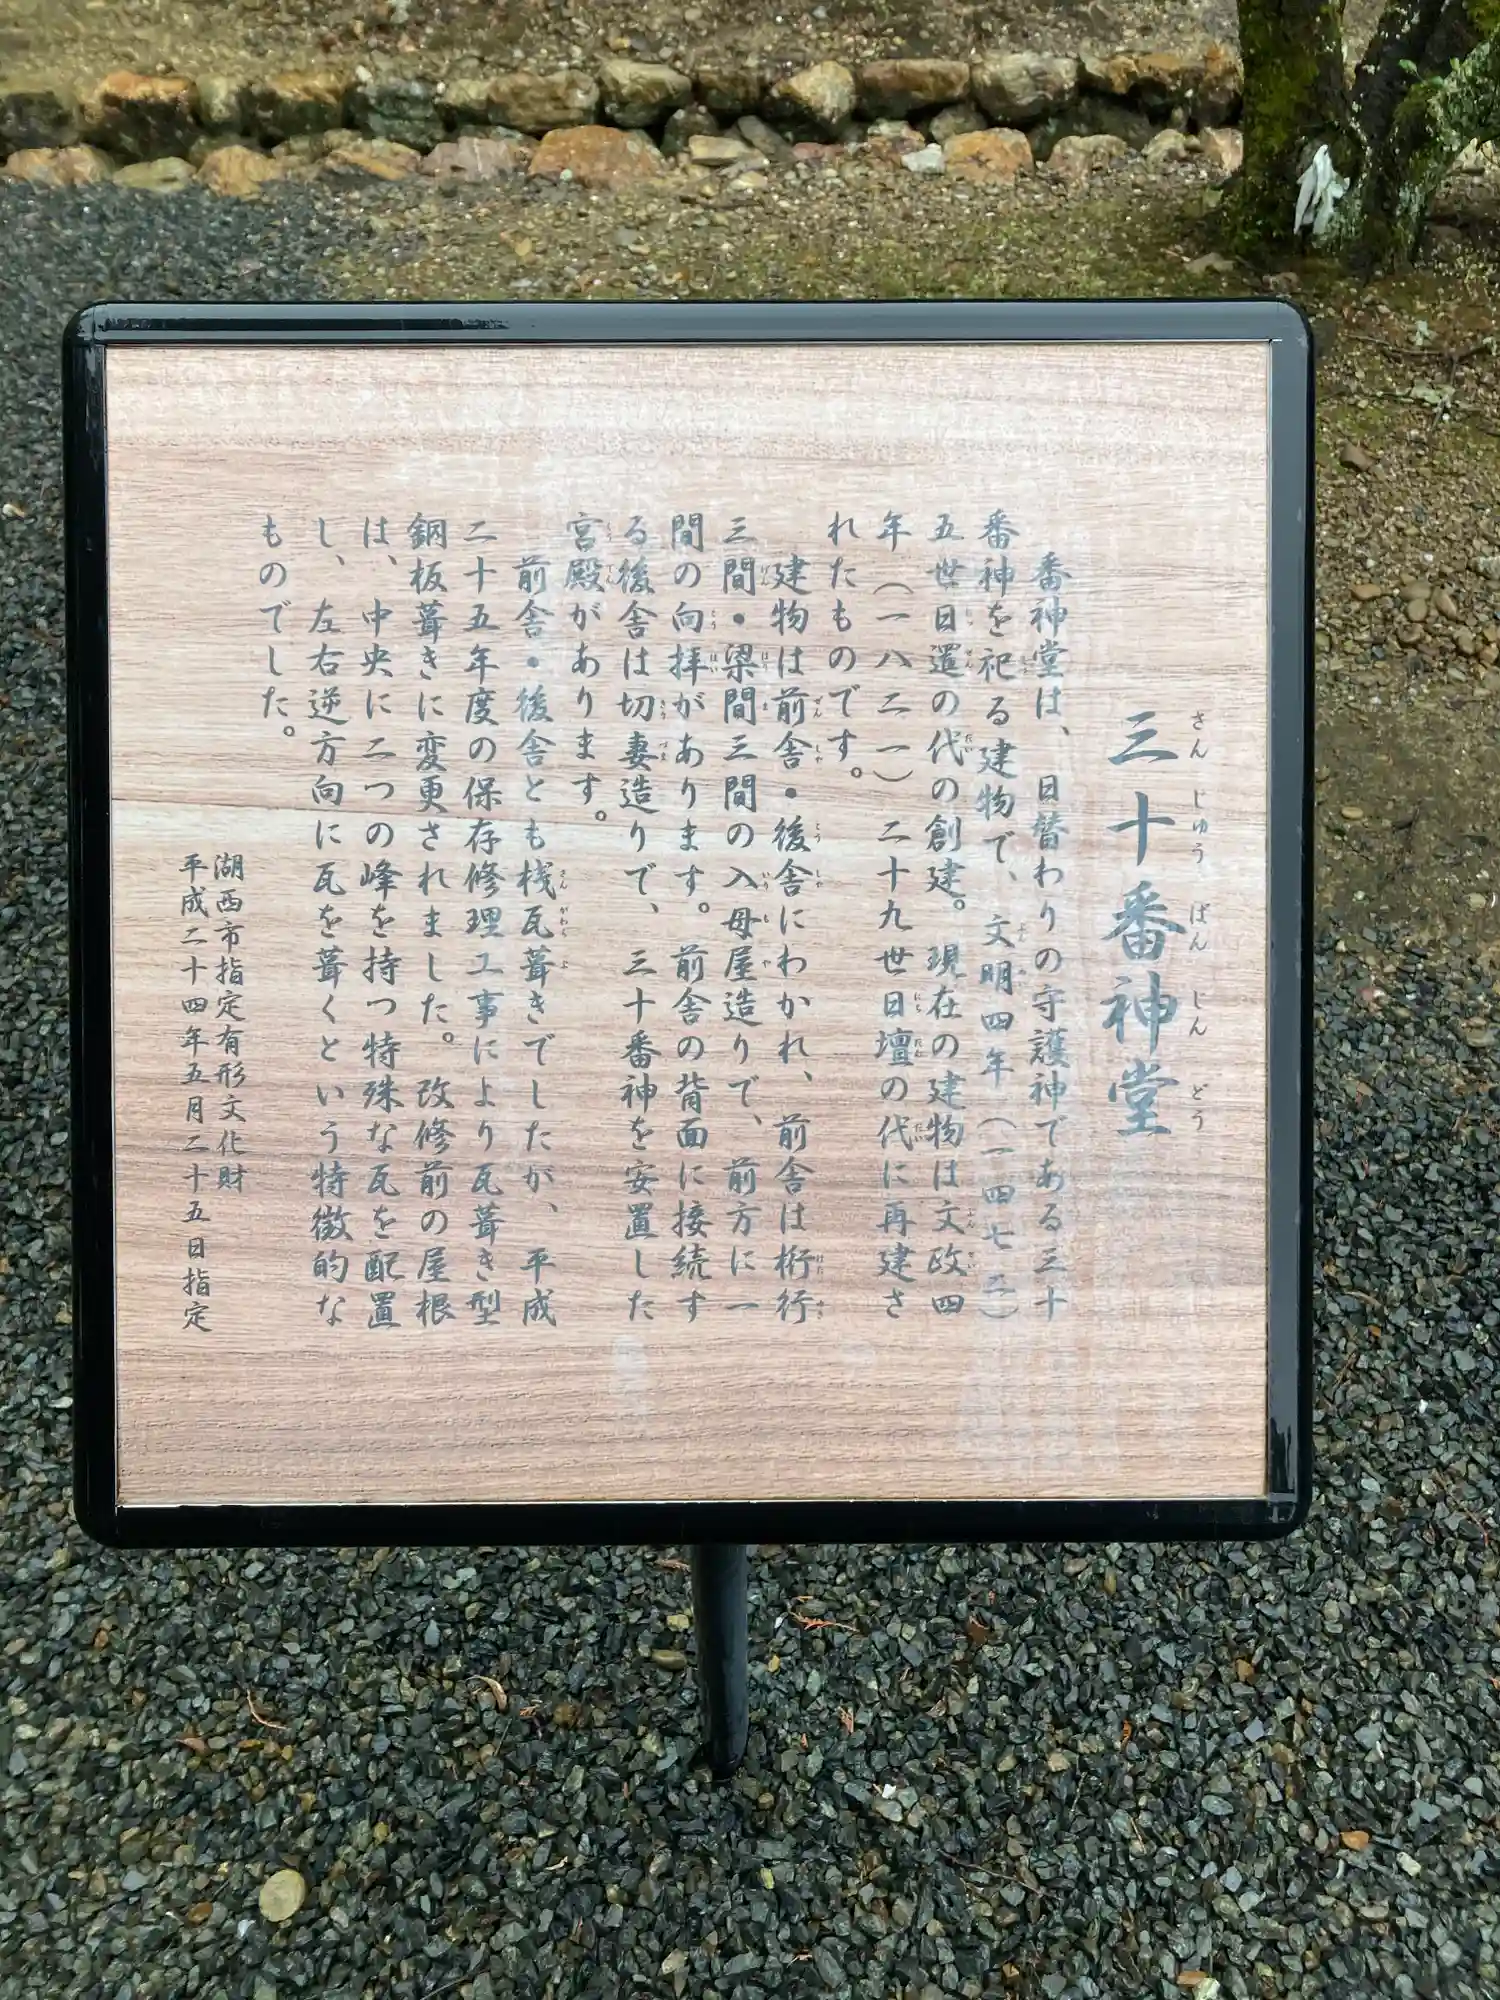 三十番神堂
番神堂は、日替わりの守護神である三十
番神を祀る建物で、文明四年（一四七二）
五世日遥の代の創建。現在の建物は文政四
年（一八二一）二十九世日壇の代に再建さ
れたものです。
建物は前舎・後舎にわかれ、前舎は桁行
三間・梁間三間の入母屋造りで、前方に一
間の向拝があります。前舎の背面に接続す
る後舎は切妻造りで、三十番神を安置した
宮殿があります。
前舎・後舎とも桟瓦葺きでしたが、平成
二十五年度の保存修理工事により瓦葺き型
銅板葺きに変更されました。改修前の屋根
は、中央に二つの峰を持つ特殊な瓦を配置
し、左右逆方向に瓦を葺くという特徴的な
ものでした。
湖西市指定有形文化財
平成二十四年五月二十五日指定